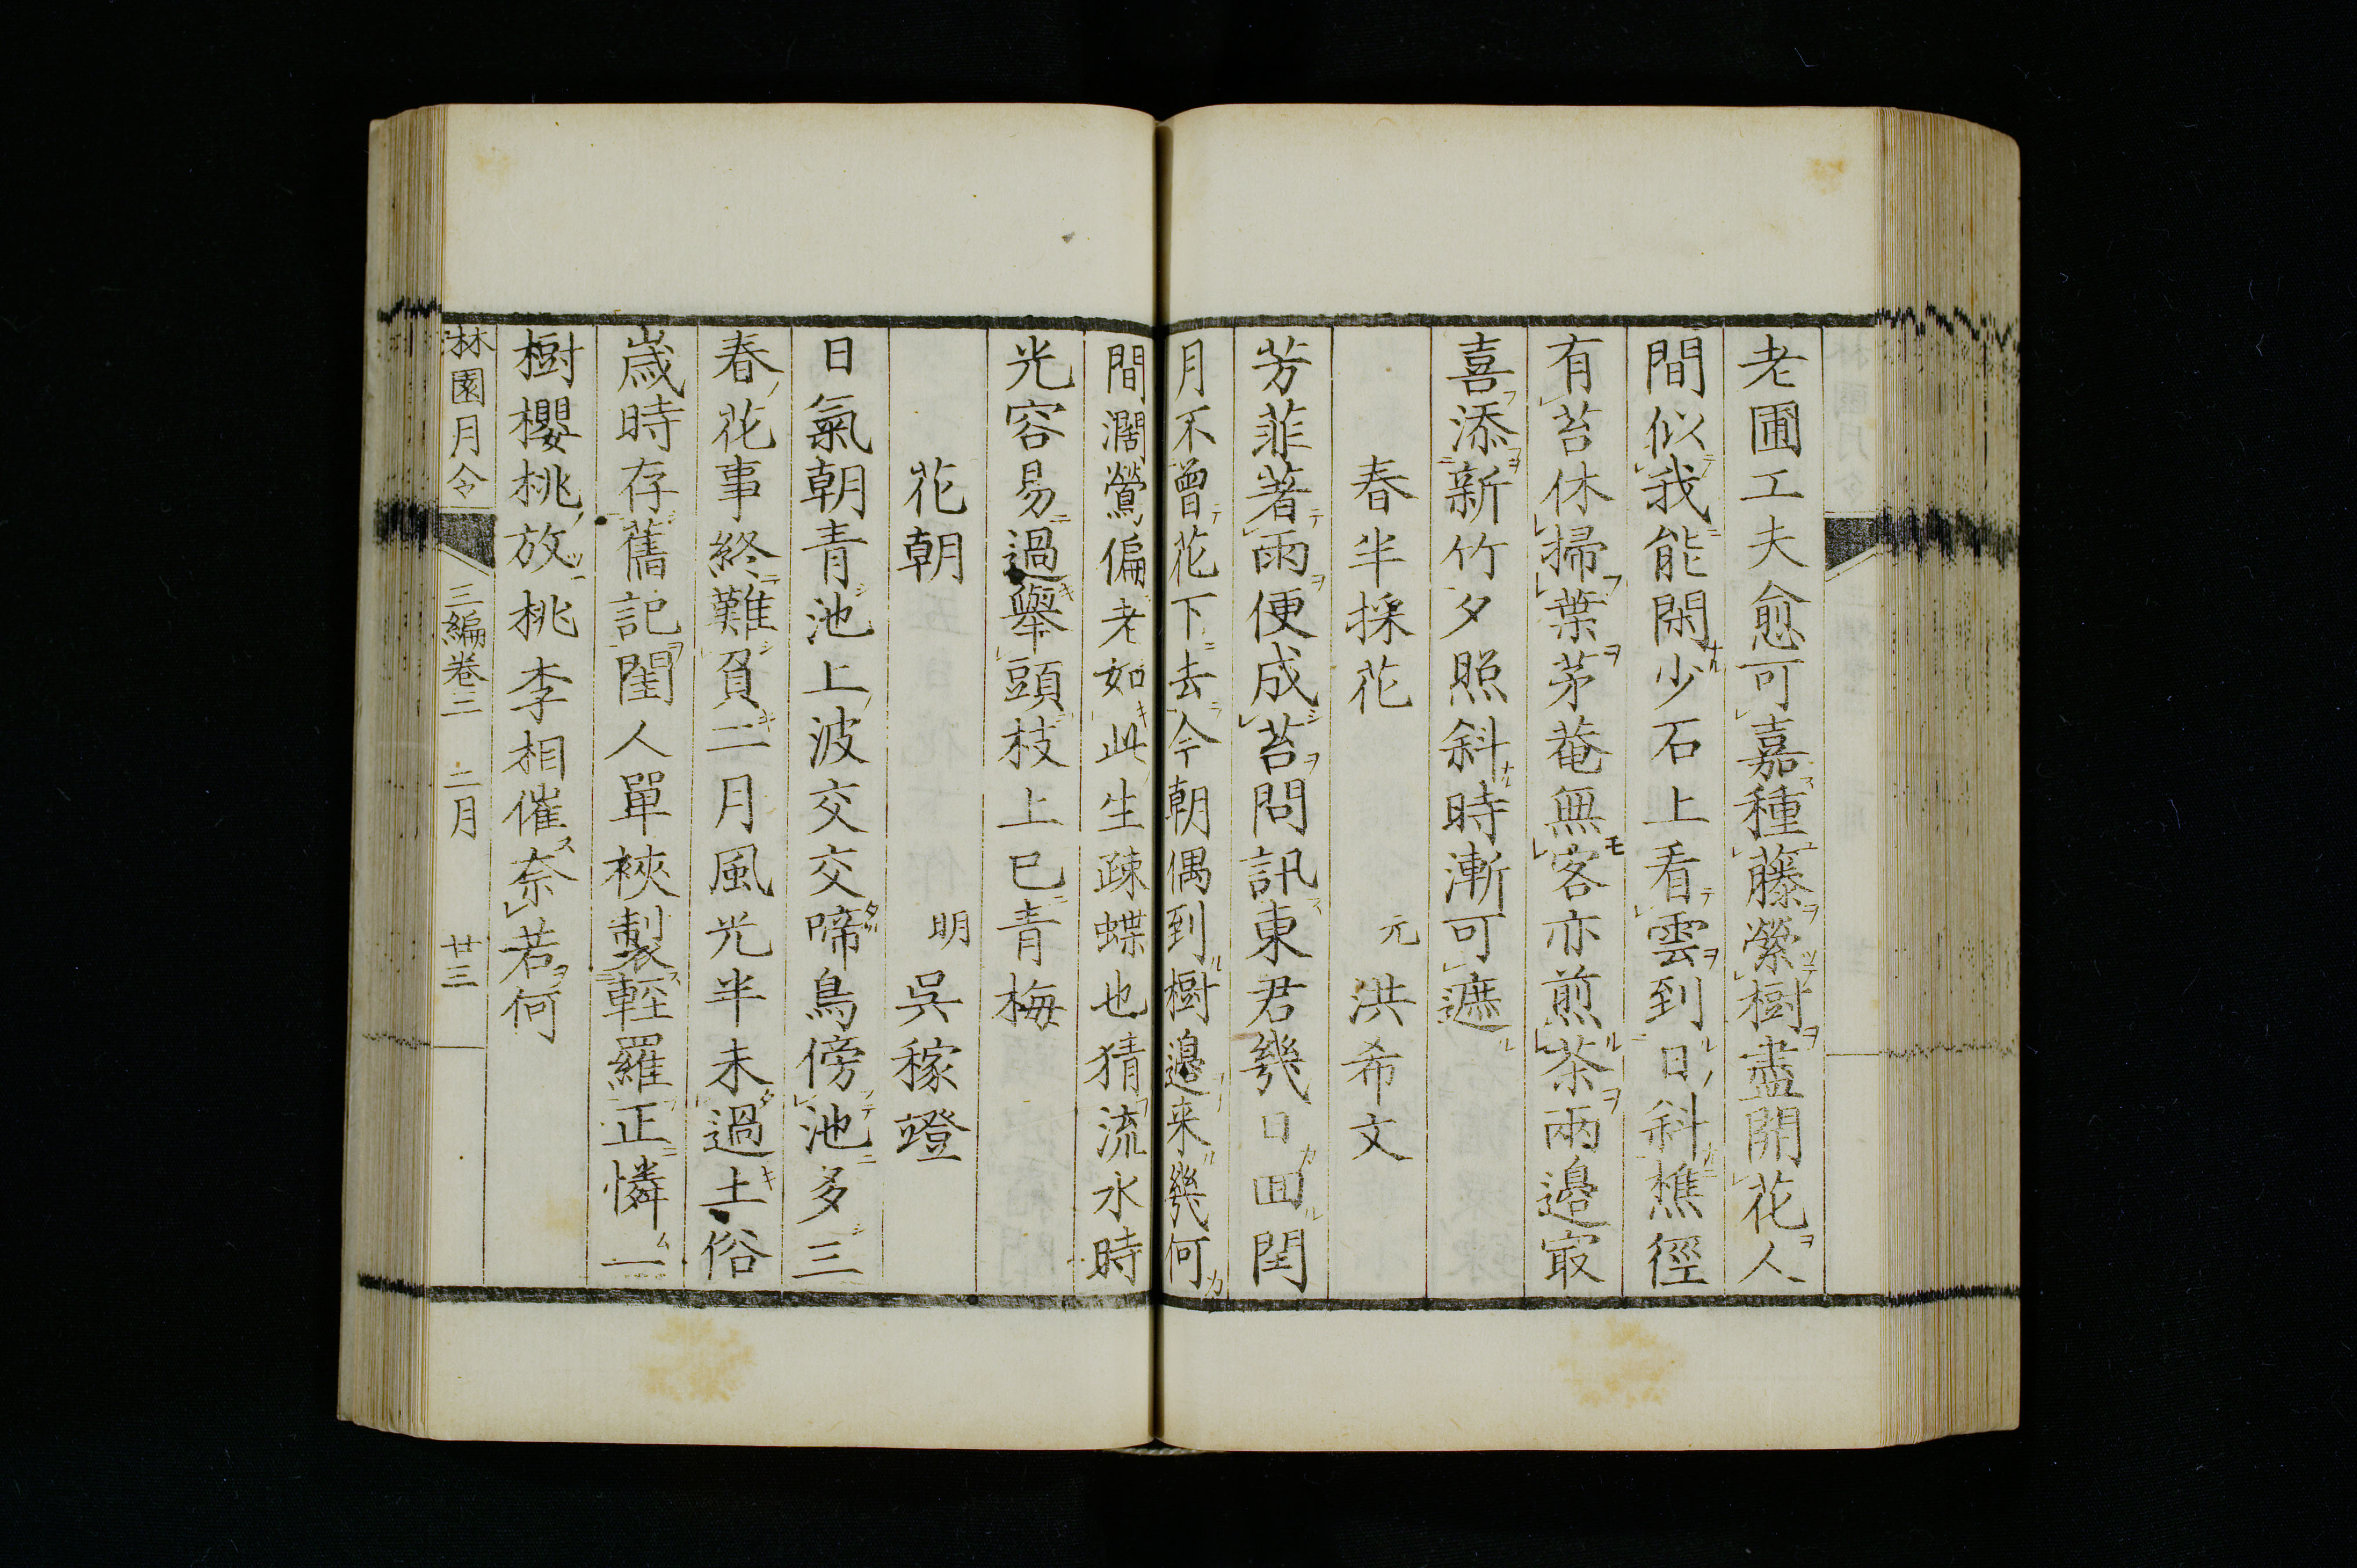 老圃工夫愈可嘉種藤縈樹盡開花人
間似我能閑少石上看雲到日斜樵徑
有苔休掃葉茅菴無客亦煎茶兩邊㝡
喜添新竹夕照斜時漸可遮
春半採花 元 洪希文
芳菲著雨便成苔問訊東君幾日回閏
月不曾花下去今朝偶到樹邉来幾何
間濶鶯偏老如此生疎蝶也猜流水時
光容易過舉頭枝上已青梅
花朝 明 吳稼竳
日氣朝青池上波交交啼鳥傍池多三
春花事終難負二月風光半未過土俗
歲時存舊記閨人單裌製輕羅正憐一
樹櫻桃放桃李相催奈若何
林園月令 三編卷三 二月 廿三